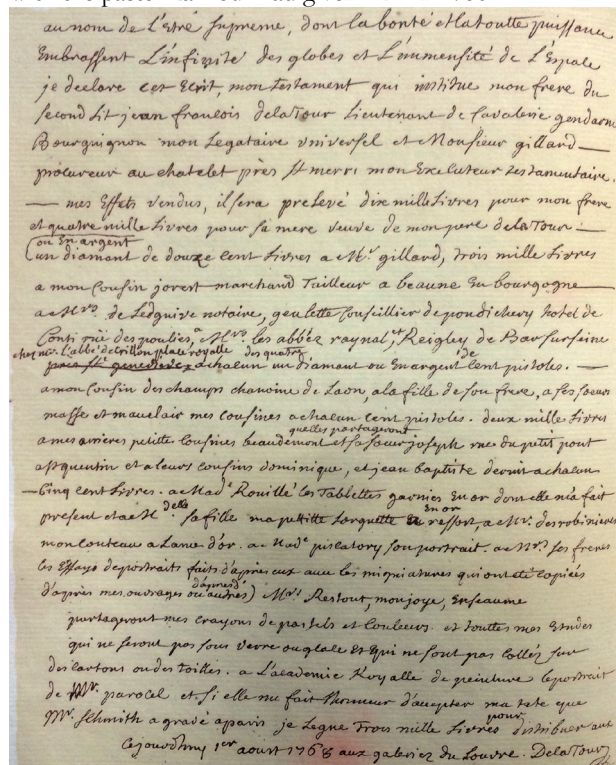 au nom de l'Etre Supreme, dont la bonté et la toutte puissance
Embrassent l'infinité des globes et l'immensité de l'Espace
je declare cet Ecrit, mon testament qui institue mon frere du
second lit jean francois delaTour Lieutenant de Cavalerie gendarme
Bourguignon mon Legataire universel et Monsieur gillard —
procureur au chatelet près St merri mon Executeur testamentaire.
— mes Effets vendus, il sera prelevé dix mille livres pour mon frere
et quatre mille Livres pour sa mere veuve de mon pere delaTour —
ou En argent
un diamant de douze cent Livres a Mr. gillard, trois mille Livres
a mon Cousin jorest marchand Tailleur a beaune En bourgogne —
a Mrs. de Ledguive notaire, geulette Conseillier de pondichery hotel de
Conti rüe des poulies, a Mrs. les abbéz raynal, et Reigley de Barsurseine
chez mr. l'abbé de Crillon place royalle des quatre de
pres Ste genevieve a chacun un diamant ou En argent Cent pistoles. —
a mon Cousin deschamps chanoine de Laon, a la fille de son frere, a ses soeurs
masse et mauclair mes Cousines a chacun Cent pistoles. deux mille Livres
quelles partageront
a mes arrieres petitte Cousines beaudemont et sa soeur joseph rue du petit pont
a St quentin et a leurs Cousins dominique, et jean baptiste a chacun
— Cinq Cent Livres. a Made. Rouillé les Tablettes garnies En or dont elle m'a fait
En or
present et a Mdelle. sa fille ma petitte Lorgnette a ressort, a Mr. desrobinieres
mon Couteau a Lame d'or. a Made. piscatory son portrait. a Mrs. ses freres
les Essays de portraits faits d'apres eux avec les migniatures qui ont eté Copiées
d'apres mes ouvrages Mrs. Restout, monjoye,
partageront mes Crayons de pastels et Couleurs. et touttes mes Etudes
qui ne seront pas sous verre ou glace Et qui ne sont pas Collés sur
des Cartons ou des toilles. a L'academie Royalle de peinture le portrait
de Mr. parocel et si elle me fait l'honneur d'accepter ma tete que
Mr. Schmith a gravé a paris je Legue Trois mille Livres pour distribuer aux
Cejourdhuy 1er aoust 1768 aux galeries du Louvre. DelaTour